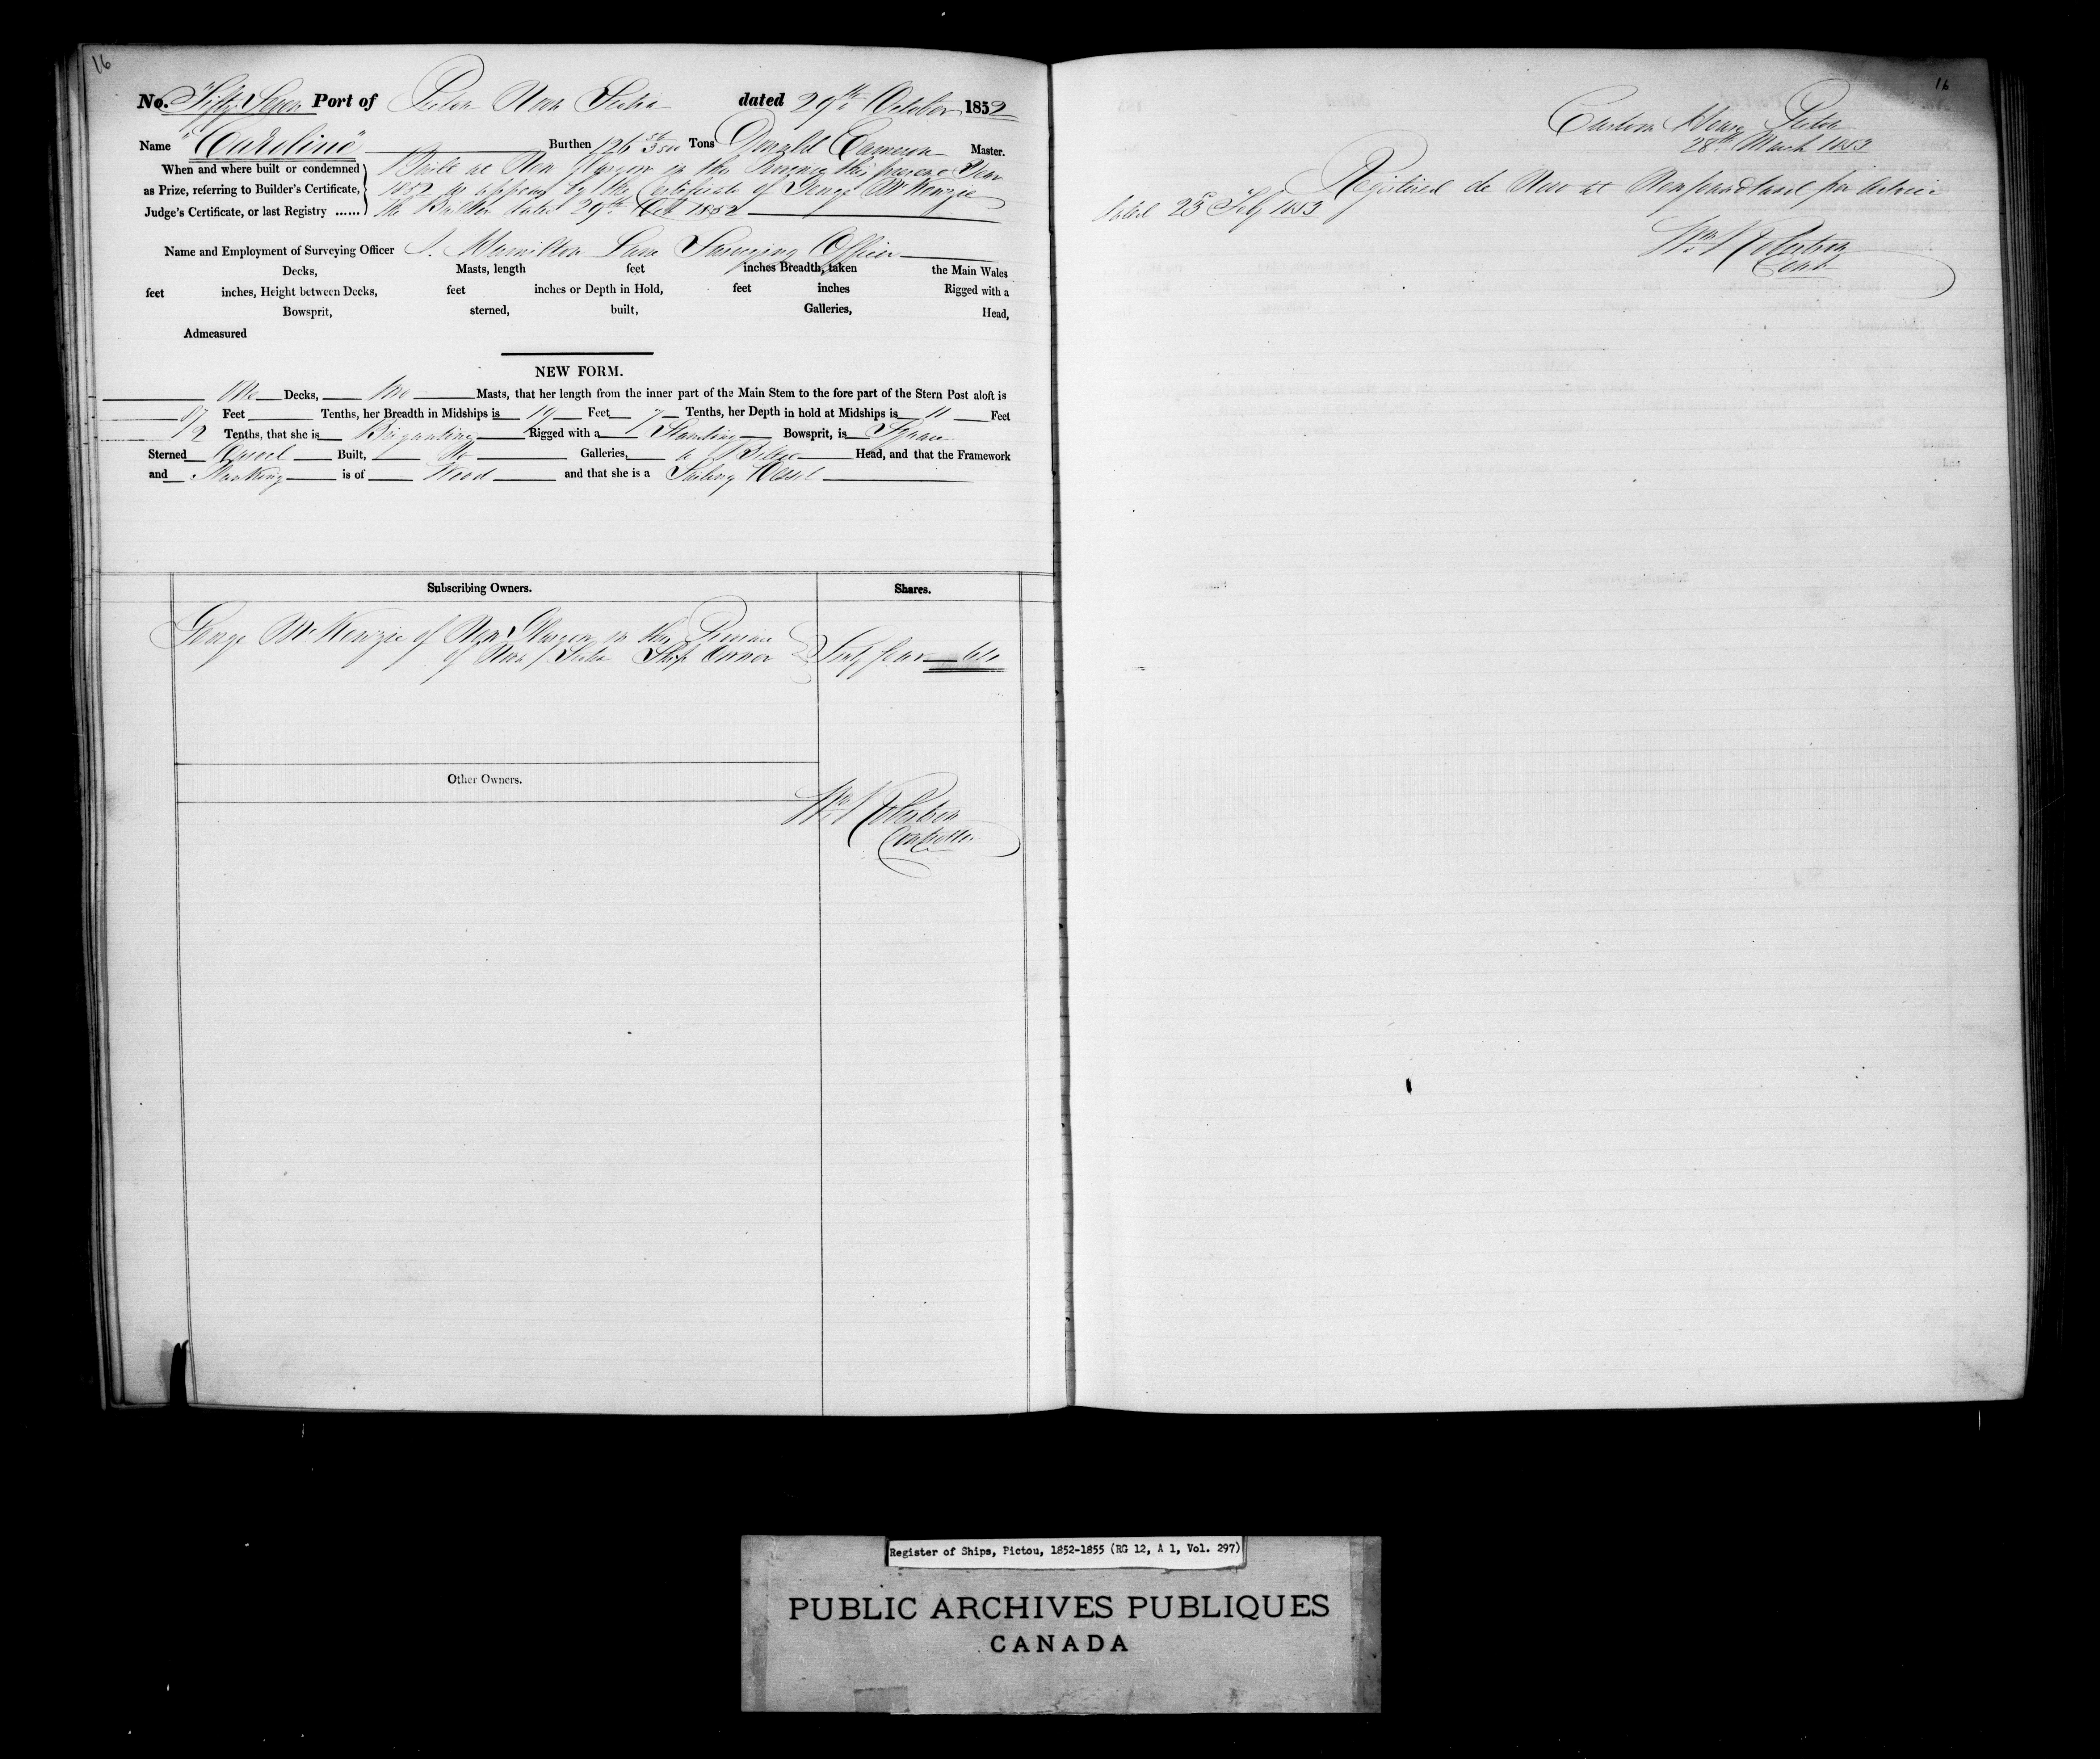 16
No. Fifty Seven Port of Pictou Nova Scotia dated 29th October 1852
Name "Caroline" Burthen 126 Tons Donald Cameron Master.
When and where built or condemned Built at New Glasgow in this Province this present Year
as Prize, referring to Builder's Certificate, 1852 as appears by the Certificate of George McKenzie
Judge's Certificate, or last Registry ...... the Builder dated 29th Oct 1852
Name and Employment of Surveying Officer J. Hamilton Lane Surveying Officer
Decks, Masts, length feet inches Breadth, taken the Main Wales
feet inches, Height between Decks, feet inches or Depth in Hold, feet inches Rigged with a
Bowsprit, sterned, built, Galleries, Head,
Admeasured
NEW FORM.
One Decks, Two Masts, that her length from the inner part of the Main Stem to the fore part of the Stern Post aloft is
87 Feet Tenths, her Breadth in Midships is 19 Feet 7 Tenths, her Depth in hold at Midships is 11 Feet
Tenths, that she is Brigantine Rigged with a Standing Bowsprit, is Square
Sterned Carvel Built, No Galleries, a Billet Head, and that the Framework
and Planking is of Wood and that she is a Sailing Vessel
Subscribing Owners. Shares.
George McKenzie of New Glasgow in the Province
of Nova Scotia Ship Owner Sixty four 64
Other Owners.
Wm Robertson
Controller
16
Custom House Pictou
28th March 1853
Registered de Novo at Newfoundland per Advice
dated 25 Feby 1853
Wm Robertson
Cont
Register of Ships, Pictou, 1852-1855 (RG 12, A 1, Vol. 297)
PUBLIC ARCHIVES PUBLIQUES
CANADA